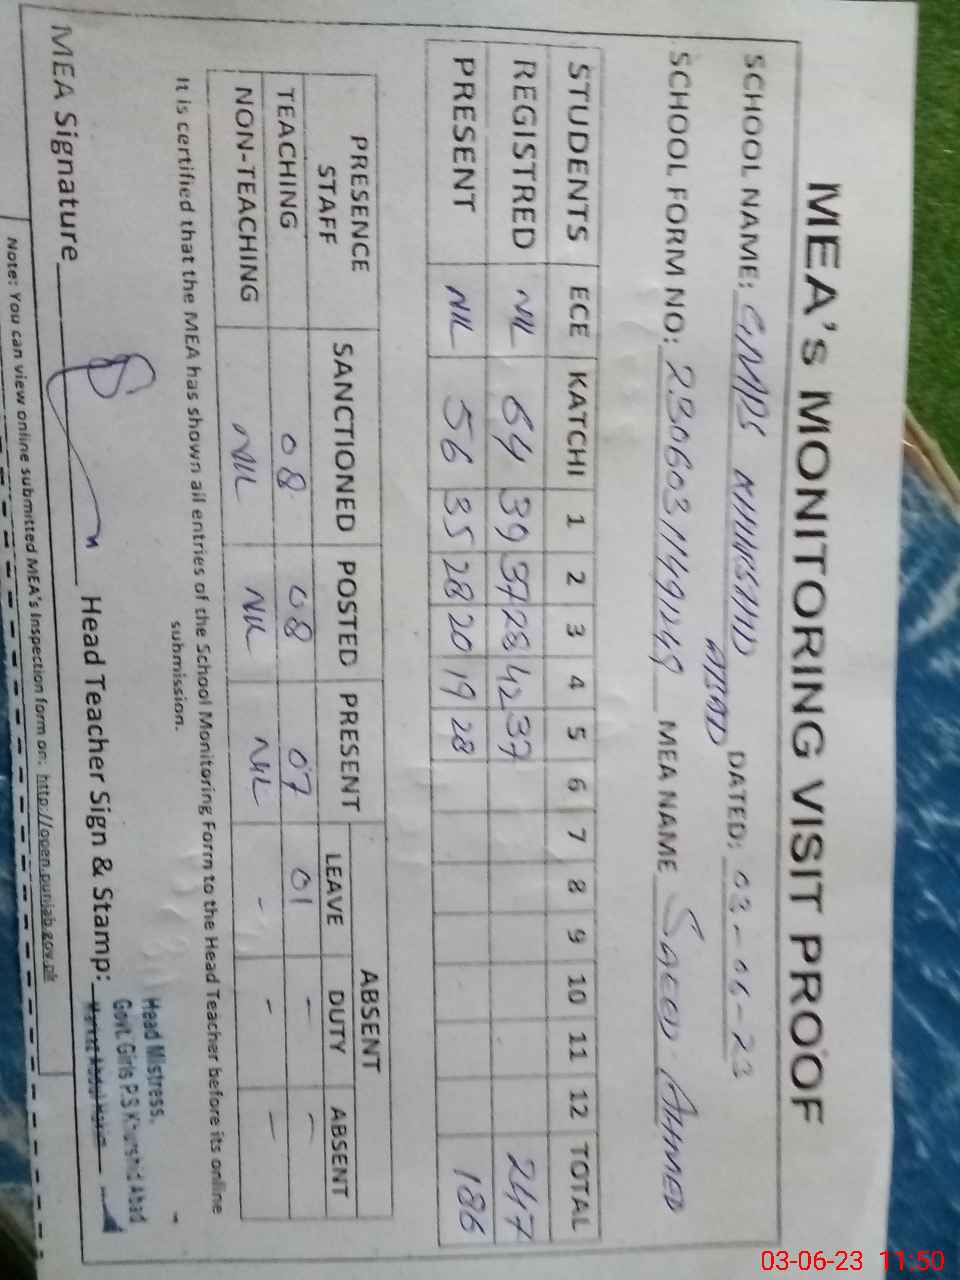 MEA's MONITORING VISIT PROOF
SCHOOL NAME: GMPS KHURSHID ABAD DATED: 03-06-23
SCHOOL FORM NO: MEA NAME Saeed Ahmed
STUDENTS ECE KATCHI 1 2 3 4 5 6 7 8 9 10 11 12 TOTAL
REGISTRED NIL 64 39 37 28 42 37 247
PRESENT NIL 56 35 28 20 19 28 186
PRESENCE STAFF SANCTIONED POSTED PRESENT ABSENT
LEAVE DUTY ABSENT
TEACHING 08 08 07 01 - -
NON-TEACHING NIL NIL NIL - - -
It is certified that the MEA has shown all entries of the School Monitoring Form to the Head Teacher before its online
submission.
MEA Signature Head Teacher Sign & Stamp:
Head Mistress.
Govt. Girls P.S Khurshid Abad
Markaz Abdul Hakim
Note: You can view online submitted MEA's Inspection form on: http://open.punjab.gov.pk
03-06-23 11:50